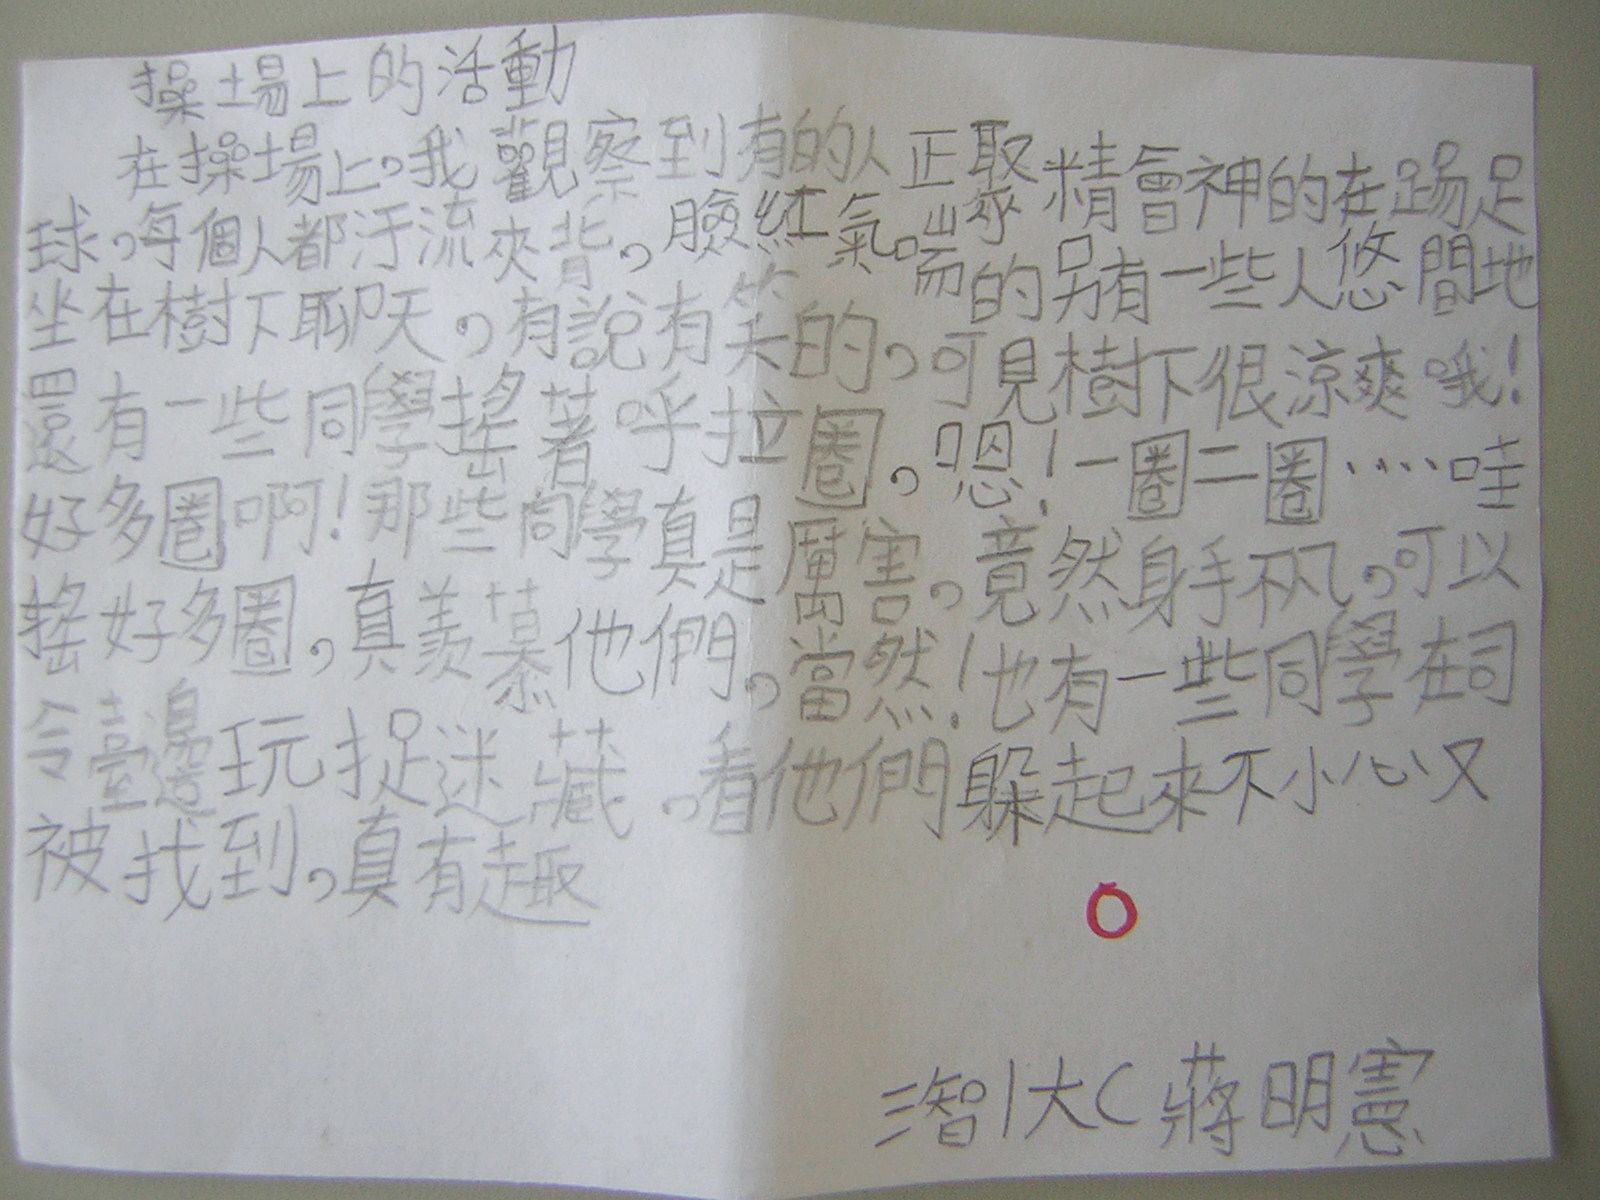 操場上的活動
在操場上,我觀察到有的人正聚精會神的在踢足
球,每個人都汙流夾背,臉紅氣喘的另有一些人悠間地
坐在樹下聊天,有說有笑的,可見樹下很涼爽哦!
還有一些同學搖著呼拉圈,嗯!一圈二圈....哇
好多圈啊!那些同學真是厲害,竟然身手不凡,可以
搖好多圈,真羨慕他們,當然!也有一些同學在司
令臺邊玩捉迷藏,看他們躲起來不小心又
被找到,真有趣
三智 大C 蔣明憲